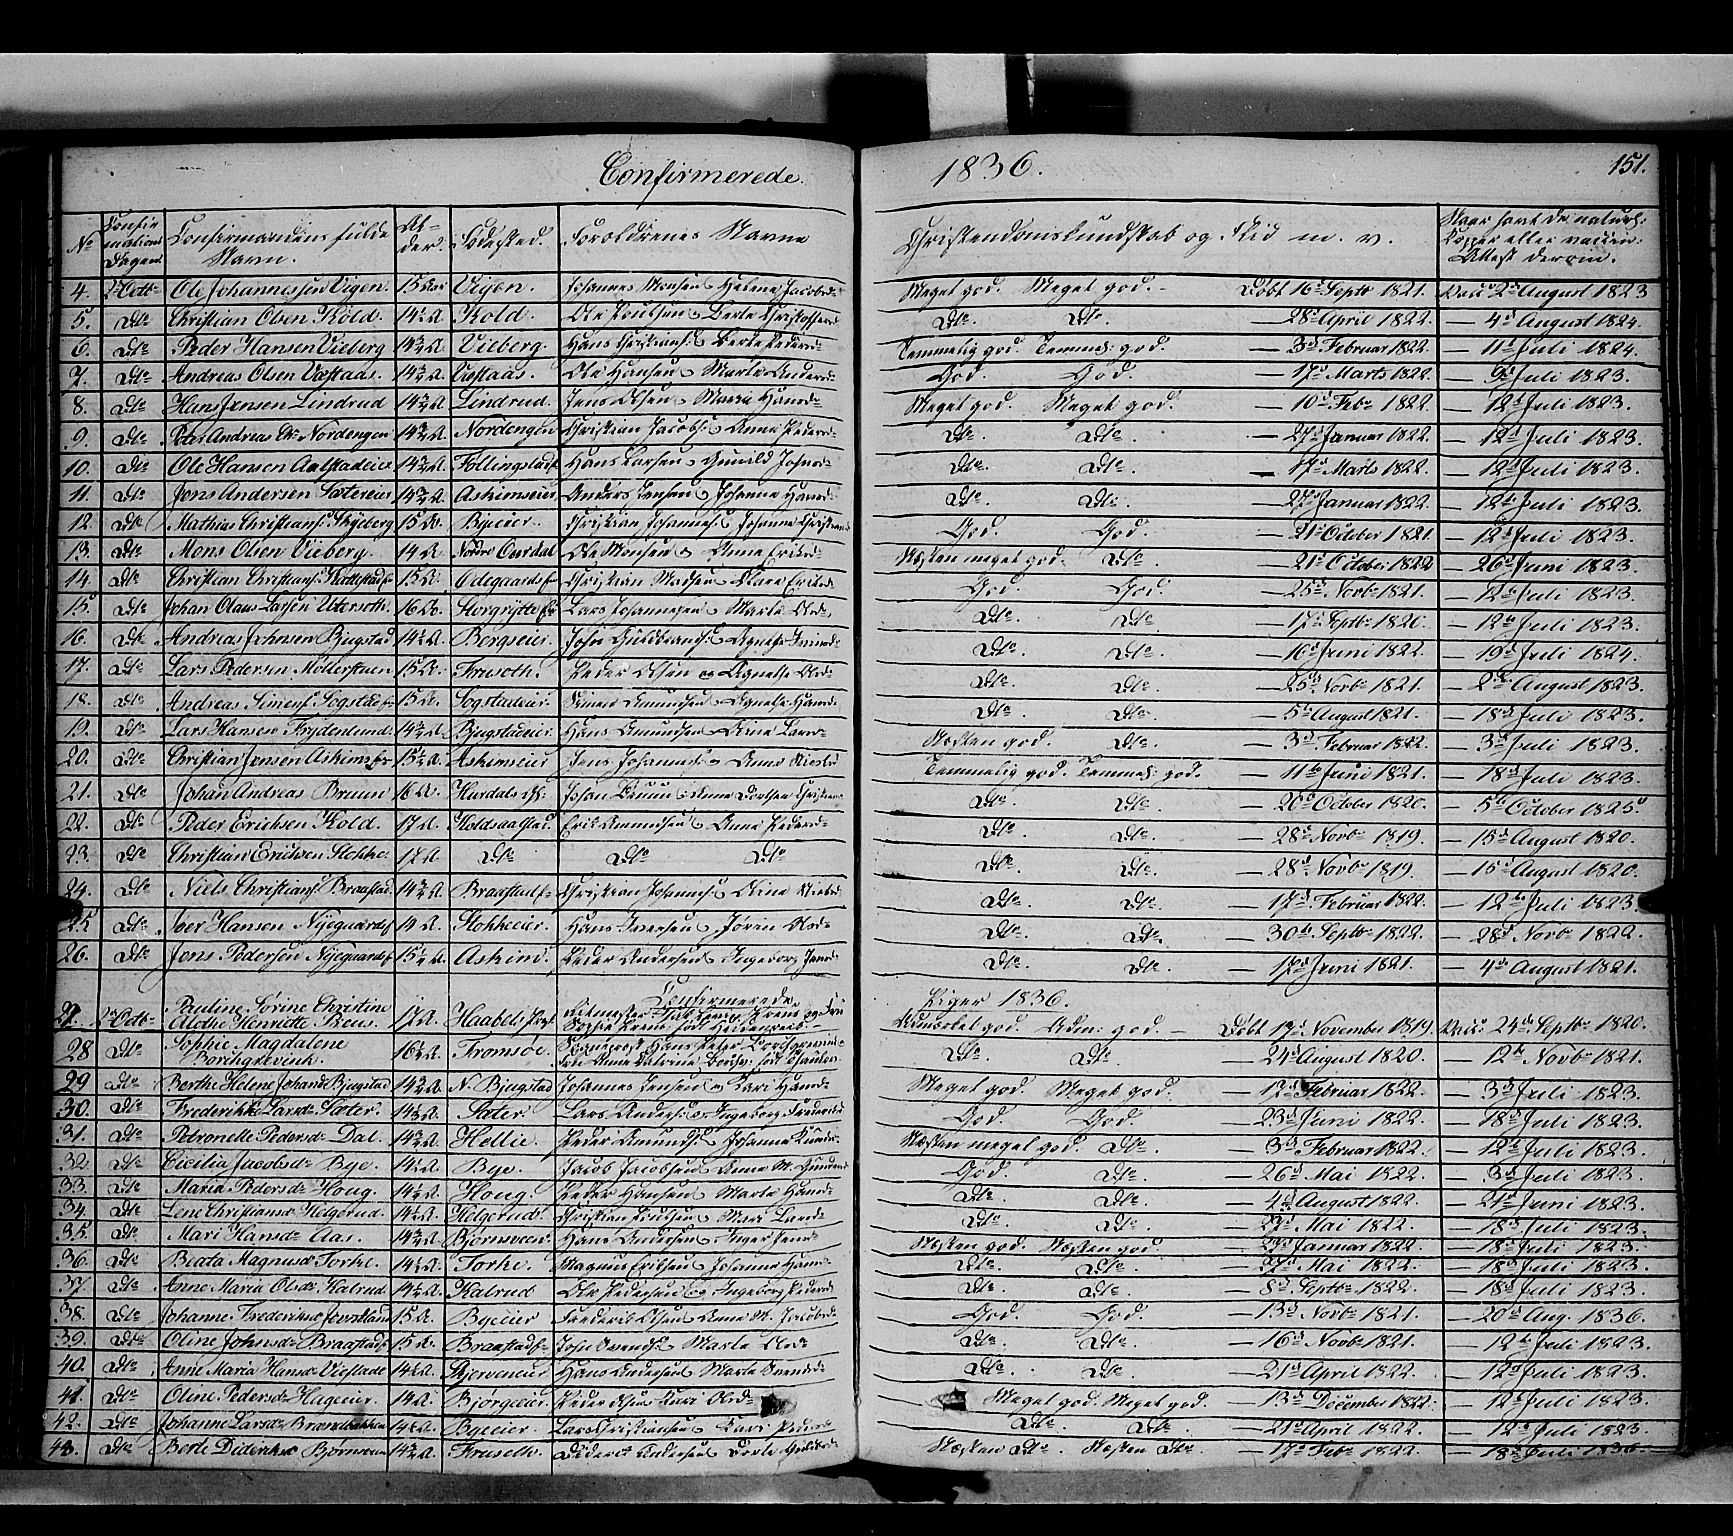 Confirmerede 1836. 151.
No Confirmations Dagen. Confirmandens fulde Navn. Alder. Fødested. Forældrenes Navne Christendomskundskab og Flid m. v. Naar havt de naturl: Kopper eller vaccin: Attest derom.
4. 2d Octbr Ole Johannessen Vigen. 15 Aar Vigen. Johannes Monsen & Helene Jacobsd. Meget god. Meget god. Døbt 16d Septbr 1821. Vacc: 2d August 1823
5. Dto Christian Olsen Kold. 14½ A. Kold. Ole Poulsen & Berte Christoffersd. Dto. Dto. — 28d April 1822. — 4d August 1824.
6. Dto Peder Hansen Vieberg 14¾ A. Vieberg. Hans Christians: & Berte Pedersd. Temmelig god. Temmel: god. — 3d Februar 1822. — 11d Juli 1824.
7. Dto Andreas Olsen Vastaas. 14¾ A. Vastaas. Ole Hansen & Marte Andersd. God. God. — 17d Marts 1822. — 9d Juli 1823.
8. Dto Hans Jensen Lindrud 14¾ A. Lindrud. Jens Olsen & Marie Hansd. Meget god. Meget god. — 10d Febr 1822. — 12d Juli 1823.
9. Dto Peter Andreas Chr. Nordengen 14¾ A. Nordengen Christian Jacobs: & Anne Pedersd. Dto. Dto. — 27d Januar 1822. — 12d Juli 1823.
10. Dto Ole Hansen Aalstadeie 14¾ A. Føllingstad Hans Larsen & Gunild Johnsd. Dto. Dto. — 17d Marts 1822. — 12d Juli 1823.
11. Dto Jens Andersen Sætereier 14¾ A. Askimseier Anders Jensen & Johanne Hansd. Dto. Dto. — 27d Januar 1822. — 12d Juli 1823.
12. Dto Mathias Christians: Skyberg 15 A. Byeeier. Christian Johannes: & Johanne Christians. God. God. — 21d October 1821. — 12d Juli 1823.
13. Dto Mons Olsen Vieberg. 14 A. Nordre Ourdal Ole Monsen & Anne Eriksd. Næsten meget god. Dto. — 21d October 1822 — 26d Juni 1823.
14. Dto Christian Christians: Kattestad 15 A. Ødegaards Christian Madsen & Clare Eriksd. God. God. — 25d Novbr 1821. — 12d Juli 1823.
15. Dto Johan Olaus Larsen Utersoth. 16 A. Storgrytte Lars Johannesen & Marte Olsd. Dto. Dto. — 17d Septbr 1820. — 12d Juli 1823.
16. Dto Andreas Johnsen Bjugstad 14½ A. Bergseier. John Guldbrands: & Agnethe Dto. Dto. — 16d Juni 1822. — 19d Juli 1824.
17. Dto Lars Pedersen Møllerstuen 15 A. Frusoth. Peder Olsen og Agnethe Olsd. Dto. Dto. — 25d Novbr 1821. — 2d August 1823.
18. Dto Andreas Simens: Sogstad 15 A. Sogstadeier. Simen Amundsen & Agnethe Hansd. Dto. Dto. — 5d August 1821. — 18d Juli 1823.
19. Dto Lars Hansen Frydenlund 14¾ A. Bjugstadeier. Hans Amundsen & Eline Larsd. Næsten god. Dto. — 3d Februar 1822. — 3d Juli 1823.
20. Dto Christian Jensen Askims 15¼ A. Askimseier Jens Johannes: & Anne Nielsd. Temmelig god. Temmel: god. — 11d Juni 1821. — 18d Juli 1823.
21. Dto Johan Andreas Bruun 16 A. Hurdals Johan Bruun & Anne Dorthea Christens Dto. Dto. — 20d October 1820. — 5d October 1825
22. Dto Peder Erichsen Kold. 17 A. Koldsaalstad. Erik Amundsen & Anne Pedersd. Dto. Dto. — 28d Novbr 1819. — 15d August 1820.
23. Dto Christian Erichsen Stokke. 17 A. Dto Dto Dto Dto. Dto. — 28d Novbr 1819. — 15d August 1820.
24. Dto Niels Christians: Braastad. 14¾ A. Braastad Christian Johannes: & Eline Nielsd. Dto. Dto. — 17d Februar 1822. — 12d Juli 1823.
25 Dto Iver Hansen Nyegaards 14 A. Stokkeeier. Hans Iversen & Jøren Olsd. Dto. Dto. — 30d Septbr 1822. — 28d Novbr 1822.
26. Dto Jens Pedersen Nyegaards 15¼ A. Askim. Peder Andersen & Ingeborg Jensd. Dto. Dto. — 17d Juni 1821. — 4d August 1821.
Confirmerede Piger 1836.
27. 2d Octbr Pauline Sørine Christine Alethe Henriette Krens. 17 A. Haabets Ritmester Krens og Fru Sophie Krens født Udmærket god. Udm: god. — Døbt 17d November 1819. Vacc: 24d Septbr 1820.
28 Dto Sophie Magdalene Borchgrevink. 16½ A. Tromsøe. Hans Peter Borchgrevink Anne Catrine født Dto. Dto. — 24d August 1820. — 12d Novbr 1821.
29 Dto Berthe Helene Johansd Bjugstad 14¾ A. N. Bjugstad Johannes Jensen & Kari Hansd. Meget god. Meget god. — 17d Februar 1822. — 3d Juli 1823.
30. Dto Frederikke Larsd. Sæter. 14¼ A. Sæter. Lars Anders: & Ingeborg Frederiksd God. God. — 23d Juni 1822. — 18d Juli 1823.
31. Dto Petronelle Pedersd. Dal. 14¾ A. Hellie. Peder Amunds: & Johanne Næsten meget god. Dto. — 3d Februar 1822. — 12d Juli 1823.
32. Dto Cicilia Jacobsd. Bye. 14½ A. Bye. Jacob Jacobsen & Anne M. God. Dto. — 26d Mai 1822. — 3d Juli 1823.
33. Dto Maria Pedersd. Houg. 14¼ A. Houg. Peder Hansen & Marte Hansd. Dto. Dto. — 4d August 1822. — 24d Juni 1823.
34. Dto Lene Christiansd. Helgerud. 14½ A. Helgerud. Christian Poulsen & Mari Larsd. Dto. Dto. — 27d Mai 1822. — 18d Juli 1823.
35. Dto Mari Hansd. Aas. 14¾ A. Bjørnseier. Hans Andersen & Inger Jensd. Næsten god. Næsten god. — 27d Januar 1822. — 18d Juli 1823.
36. Dto Beata Magnusd. Forke. 14½ A. Forke. Magnus Erichsen & Johanne Hansd. Dto. Dto. — 27d Mai 1822. — 18d Juli 1823.
37. Dto Anne Maria Olsd. Kalrud. 14¼ A. Kalrud Ole Pedersen & Ingeborg Pedersd. Dto. Dto. — 8d Septbr 1822. — 18d Juli 1823.
38. Dto Johanne Frederiksd. 15 A. Byeeier Frederik Olsen & Anne M. Jacobsd. God. God. — 13d Novbr 1821. — 20d Aug. 1836.
39. Dto Oline Johnsd. Braastad 15 A. Braastad John & Marte Olsd. Dto. Dto. — 16d Novbr 1821. — 12d Juli 1823.
40. Dto Anne Maria Hansd. Vielstad 14½ A. Skjerveneier Hans Andersen & Marte Dto. Dto. — 21d April 1822. — 12d Juli 1823.
41. Dto Oline Pedersd. Hageeier. 14 A. Bjørgeeier. Peder Olsen & Kari Olsd. Meget god. Meget god. — 13d December 1822. — 12d Juli 1823.
42. Dto Johanne Larsd. Brændbakken 14½ A. Byeeier. Lars Christiansen & Kari Pedersd. Dto. Dto. — 21d April 1822. — 12d Juli 1823.
43. Dto Berte Dideriksd. Bjørnseier 14¾ A. Fruseth. Diderik Andersen & Berte Næsten Dto. Næsten Dto. — 17d Febr 1822. — 18d Juli 1836.